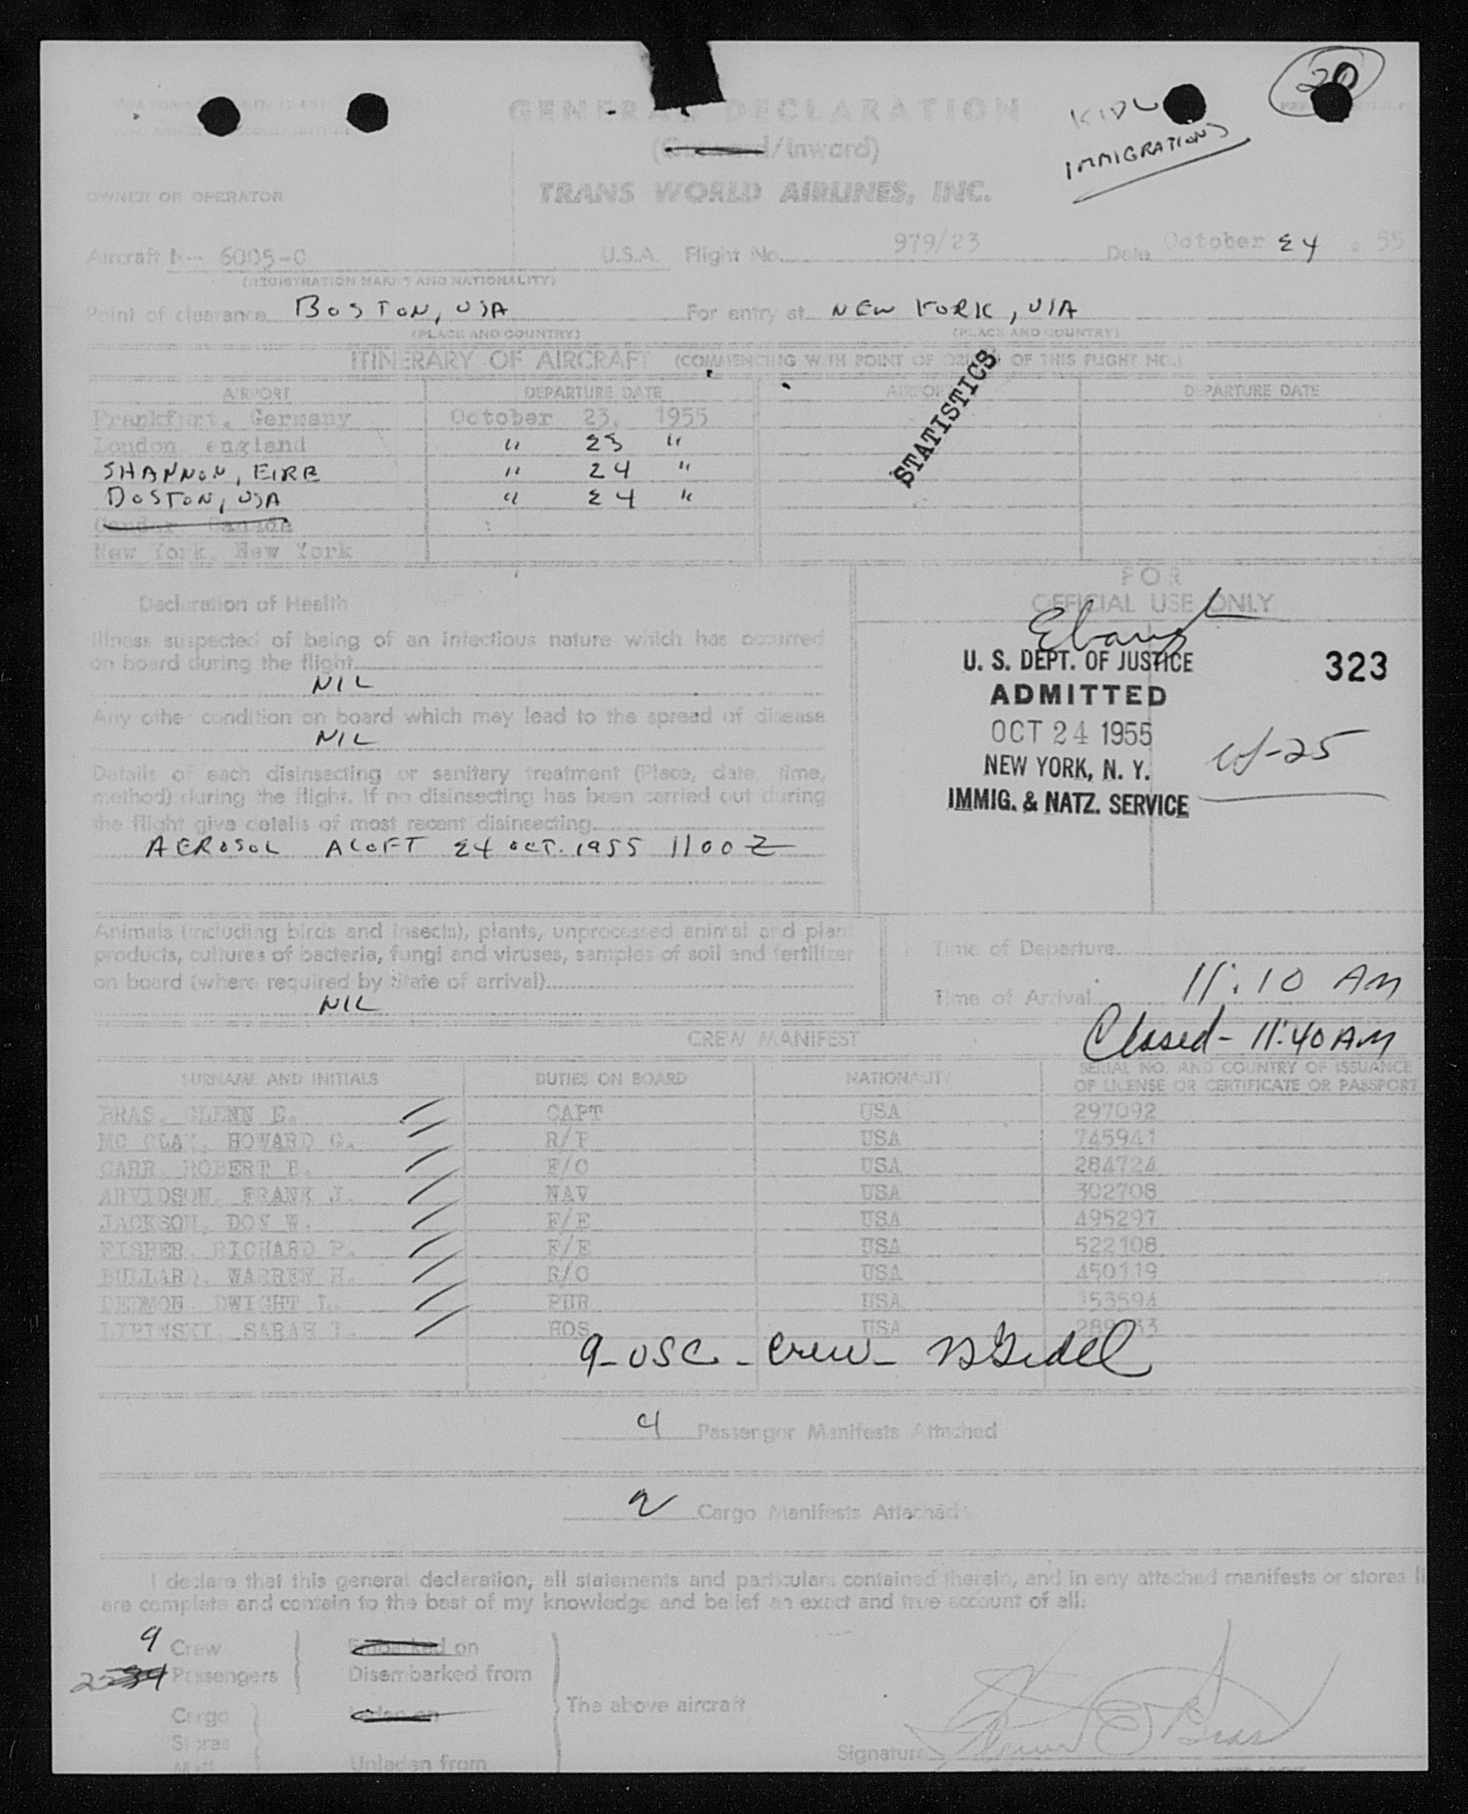 20
KIDL
IMMIGRATIONS
GENERAL DECLARATION
(Outward/Inward)
TRANS WORLD AIRLINES, INC.
OWNER OR OPERATOR
Aircraft N- 6005-C U.S.A. Flight No. 979/23 Date October 24, 55
(REGISTRATION MARKS AND NATIONALITY)
Point of clearance BOSTON, USA For entry at NEW YORK, USA
(PLACE AND COUNTRY) (PLACE AND COUNTRY)
ITINERARY OF AIRCRAFT (COMMENCING WITH POINT OF ORIGIN OF THIS FLIGHT NO.)
AIRPORT DEPARTURE DATE AIRPORT DEPARTURE DATE
STATISTICS
Frankfurt, Germany October 23, 1955
London, england " 23 "
SHANNON, EIRE " 24 "
BOSTON, USA " 24 "
Gander Canada
New York, New York
FOR
OFFICIAL USE ONLY
Declaration of Health
Illness suspected of being of an infectious nature which has occurred
on board during the flight
NIL
Any other condition on board which may lead to the spread of disease
NIL
Details of each disinsecting or sanitary treatment (Place, date, time,
method) during the flight. If no disinsecting has been carried out during
the flight give details of most recent disinsecting
AEROSOL ALOFT 24 OCT. 1955 1100Z
U. S. DEPT. OF JUSTICE
323
ADMITTED
OCT 24 1955
NEW YORK, N. Y.
IMMIG. & NATZ. SERVICE
Animals (including birds and insects), plants, unprocessed animal and plant
products, cultures of bacteria, fungi and viruses, samples of soil and fertilizer
on board (where required by State of arrival)
NIL
Time of Departure
Time of Arrival 11:10 AM
Closed - 11:40 AM
CREW MANIFEST
SURNAME AND INITIALS DUTIES ON BOARD NATIONALITY SERIAL NO. AND COUNTRY OF ISSUANCE
OF LICENSE OR CERTIFICATE OR PASSPORT
BRAS, GLENN E. CAPT USA 297092
MC CLAY, HOWARD G. R/P USA 745941
CARR, ROBERT B. F/O USA 284724
ARVIDSON, FRANK J. NAV USA 302708
JACKSON, DON W. F/E USA 495297
FISHER, RICHARD P. F/E USA 522108
BULLARD, WARREN H. R/O USA 450119
DEDMON, DWIGHT L. PUR USA 353594
LIPINSKI, SARAH J. HOS USA
9 - USC - Crew -
4 Passenger Manifests Attached
2 Cargo Manifests Attached
I declare that this general declaration, all statements and particulars contained therein, and in any attached manifests or stores
are complete and contain to the best of my knowledge and belief an exact and true account of all:
9 Crew Embarked on
Passengers Disembarked from
The above aircraft
Cargo Laden on
Stores
Mail Unladen from
Signature